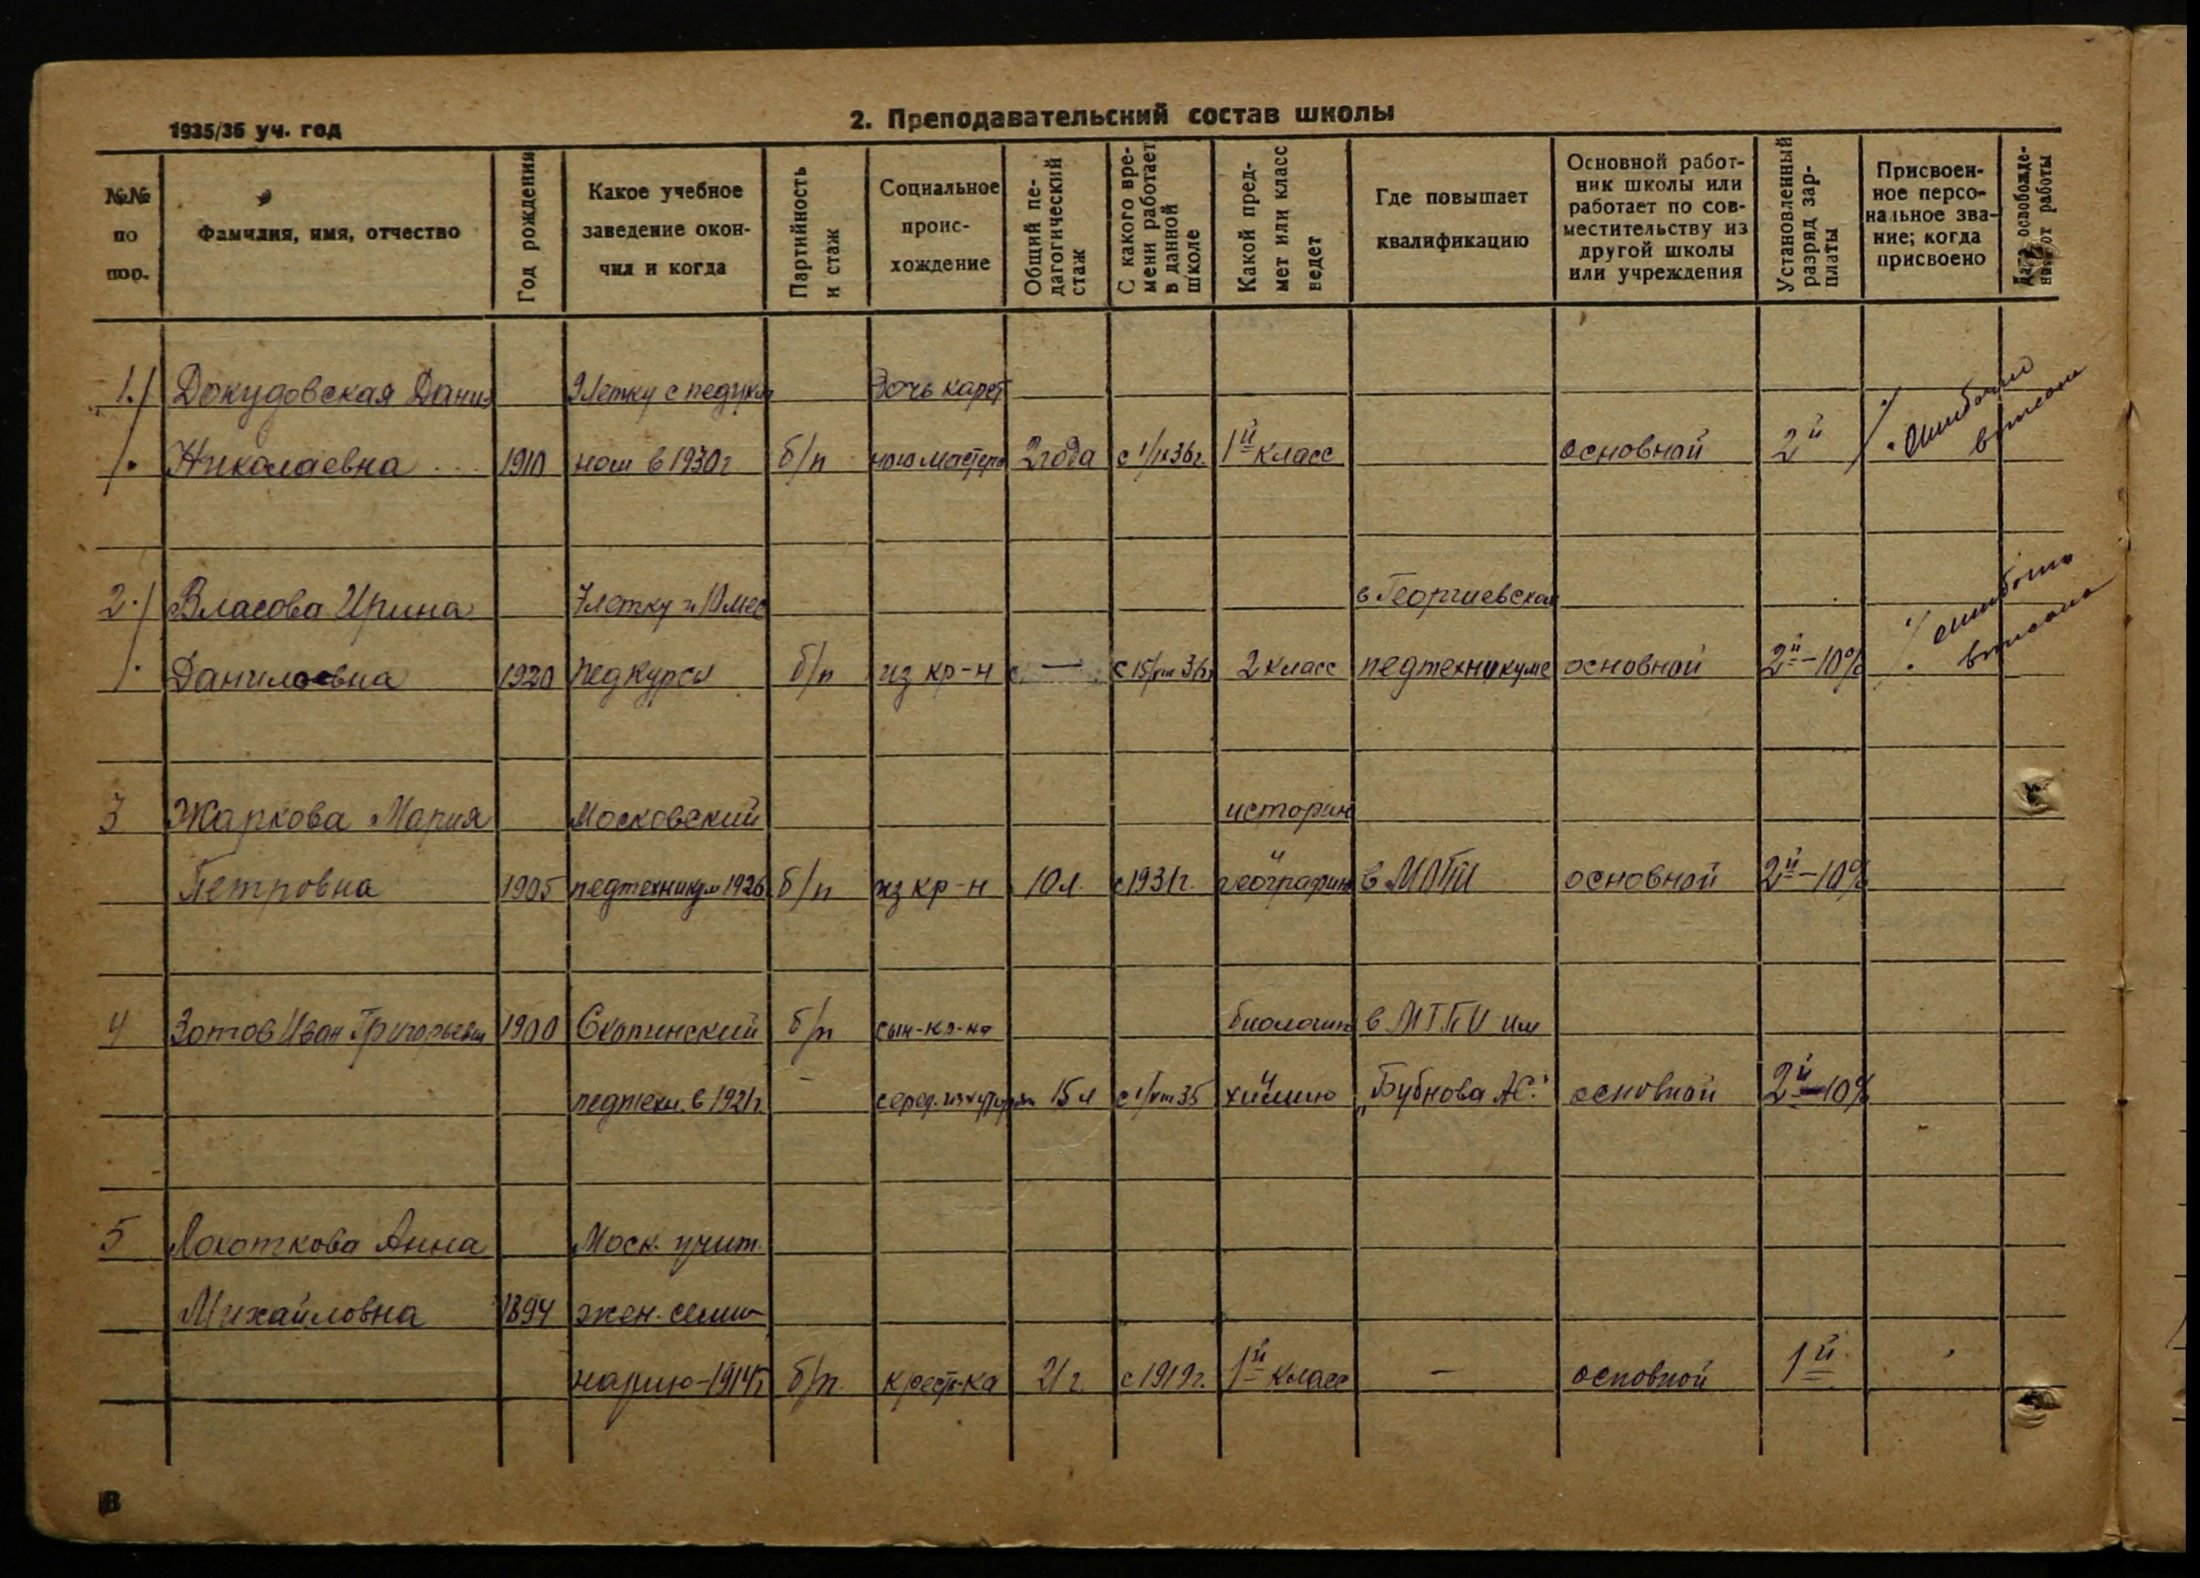 1935/36 уч. год
2. Преподавательский состав школы
№№ по пор.
Фамилия, имя, отчество
Год рождения
Какое учебное заведение окончил и когда
Партийность и стаж
Социальное происхождение
Общий педагогический стаж
С какого времени работает в данной школе
Какой предмет или класс ведет
Где повышает квалификацию
Основной работник школы или работает по совместительству из другой школы или учреждения
Установленный разряд зарплаты
Присвоенное персональное звание; когда присвоено
1. Докудовская Дания 9летку с педукло Дочь карет
Николаевна 1910 ном в 1930г б/п ного мастера 2 года с 1/IX 36г. 1й класс основной 2й ошибочно вписана
2. Власова Ирина 7летку и 10 мес в Георгиевском
Даниловна 1920 педкурсы б/п из кр-н — с 15/VIII 36г 2 класс педтехникуме основной 2й-10% ошибочно вписана
3 Жаркова Мария Московский история
Петровна 1905 педтехникум 1926 б/п из кр-н 10 л. с 1931г. и география в МОПИ основной 2й-10%
4 Зотов Иван Григорьевич 1900 Скопинский б/п сын-кр-на биологию в МГПИ им
педтехн. в 1921г. серед. 15 л с 1/VIII 35 и химию „Бубнова А.С." основной 2й-10%
5 Локоткова Анна Моск. учит.
Михайловна 1894 жен. семи-
нарию-1914г б/п. крест-ка 21 г. с 1919г. 1й класс — основной 1й
8